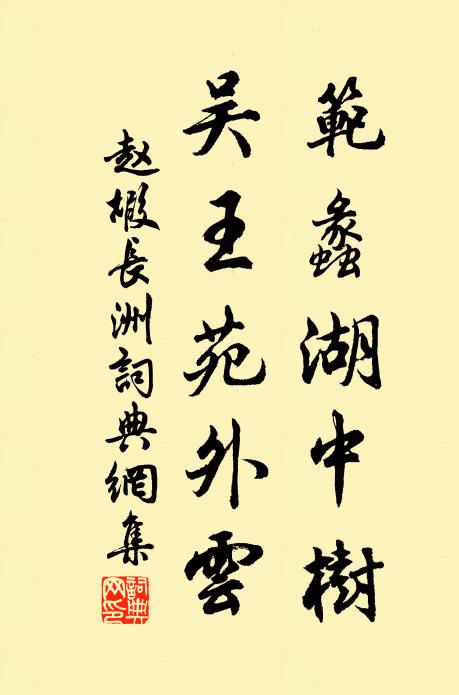 範蠡湖中樹
吴王苑外雲
赵嘏長洲詞典網集
詞典網印